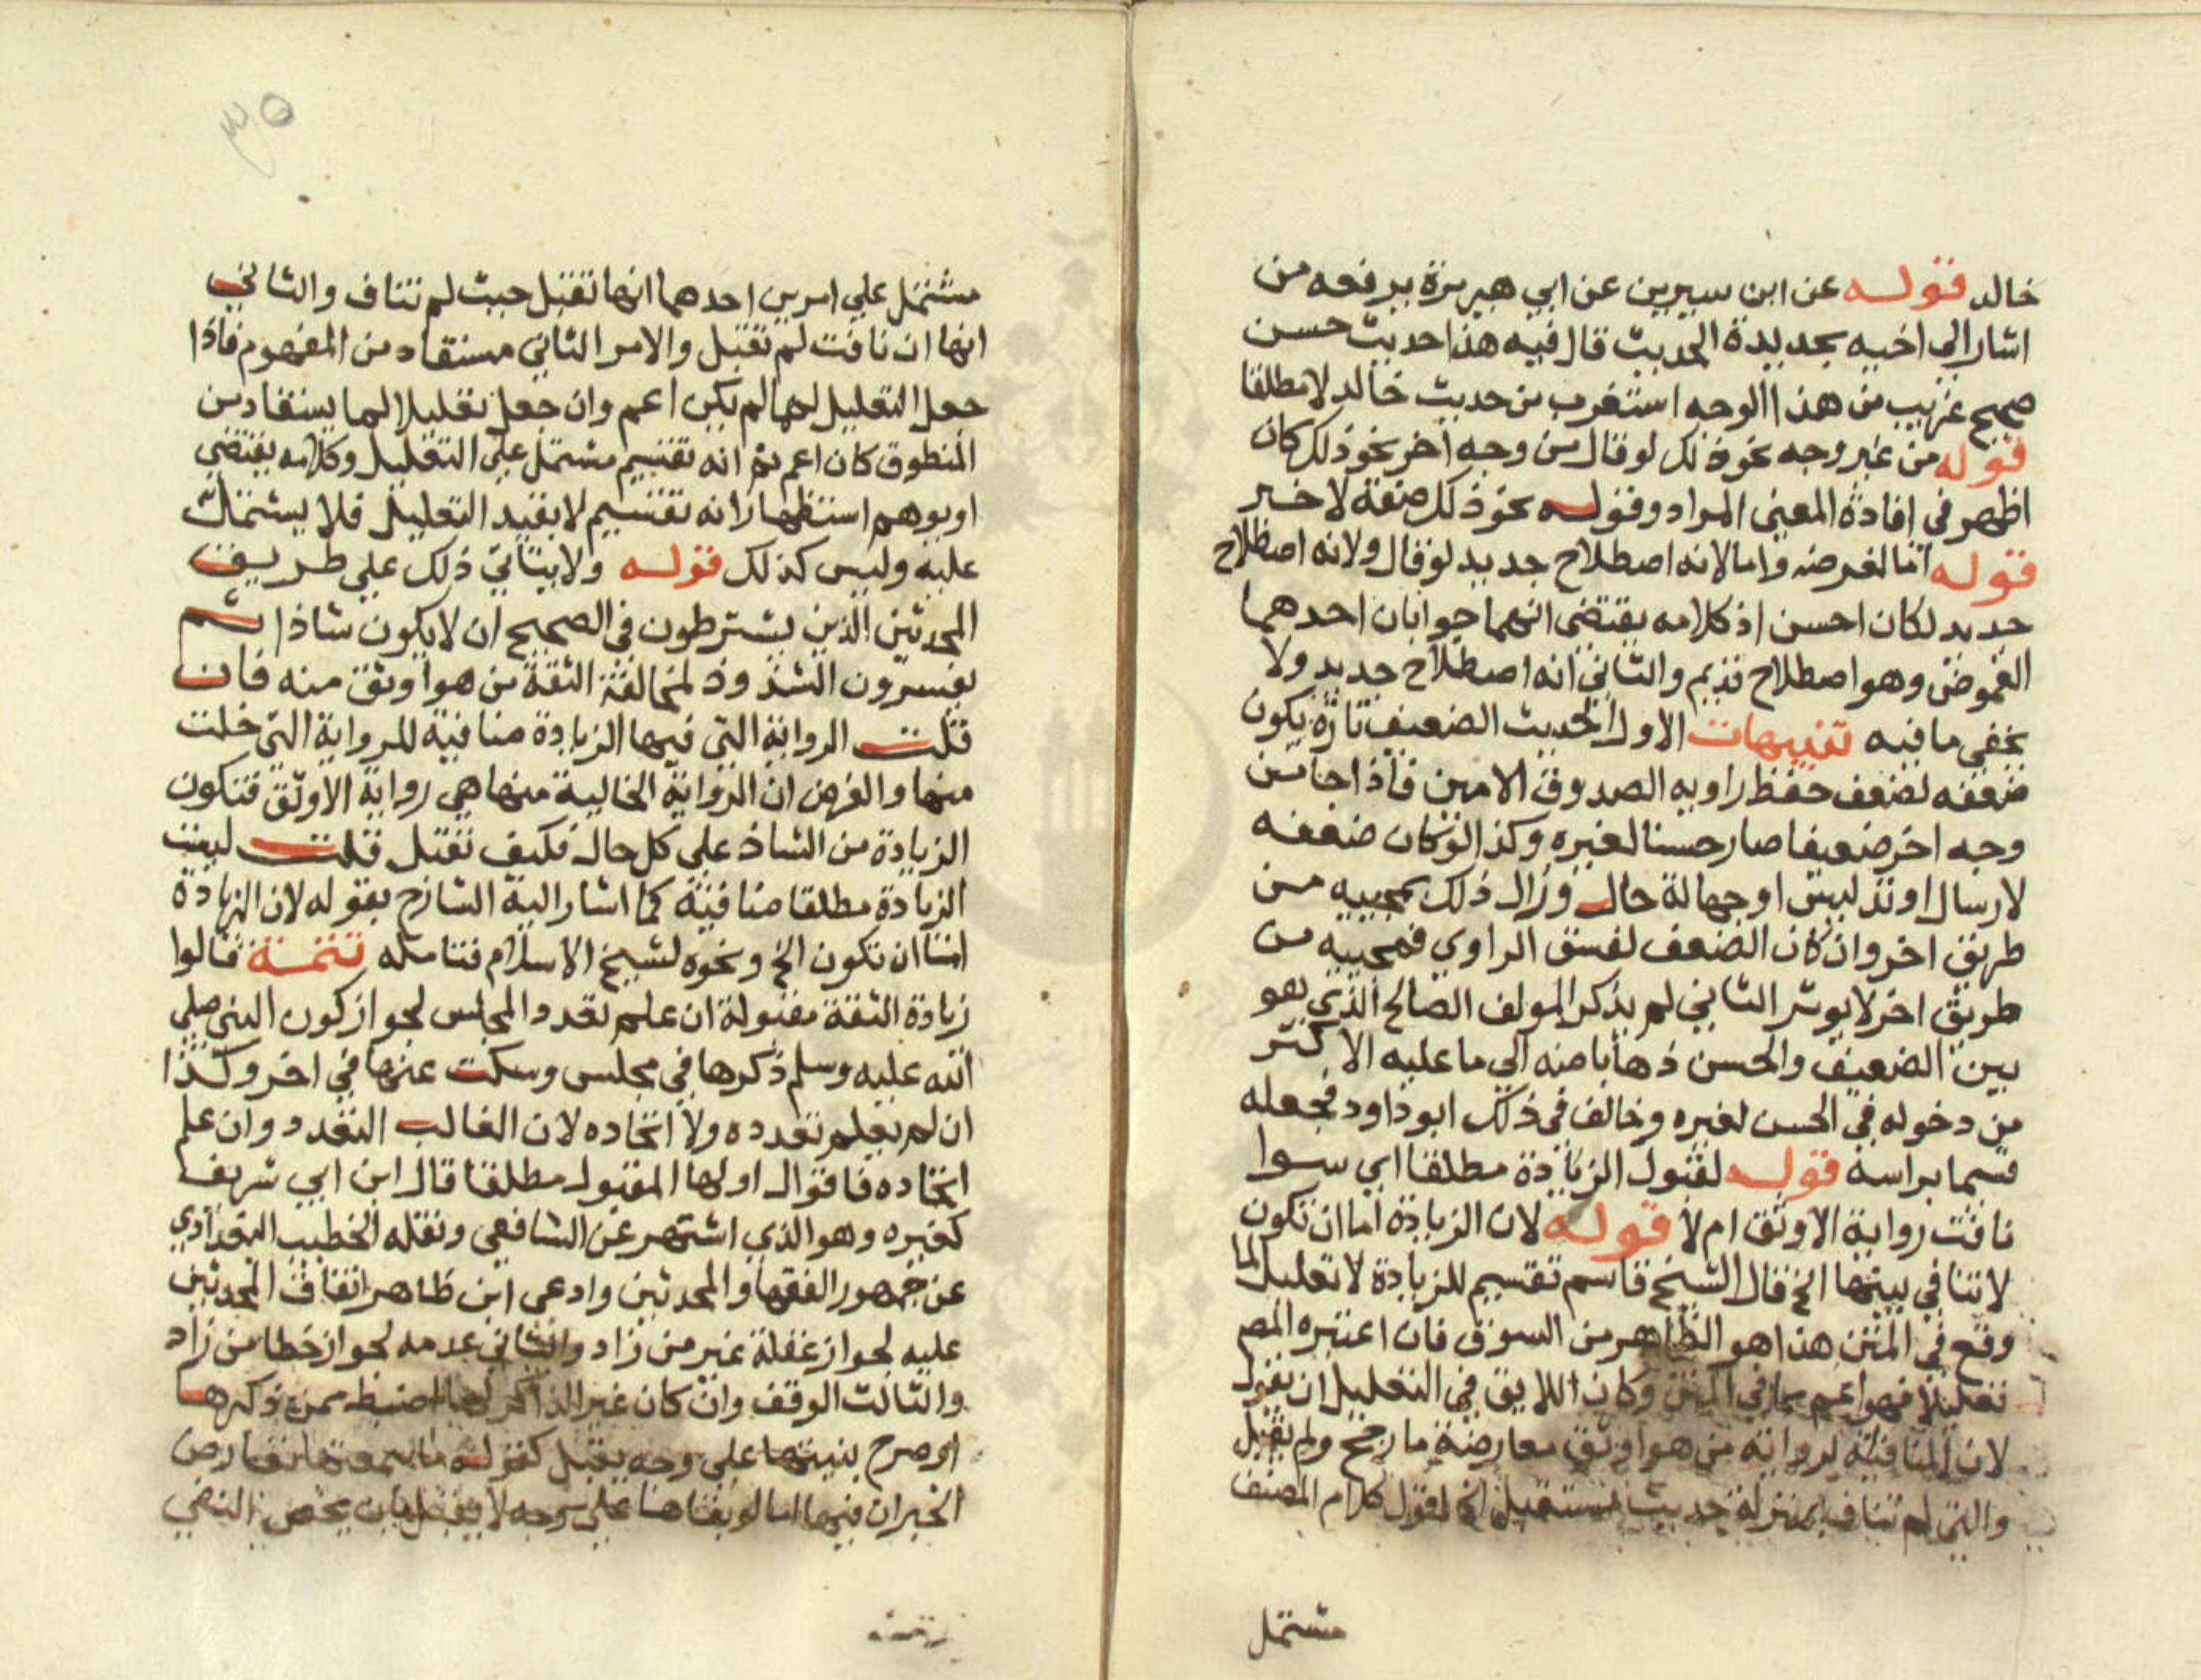 خالد قوله عن ابن سيرين عن ابي هريرة يرفعه من
اشار الى اخيه بحديدة الحديث قال فيه هذا حديث حسن
صحيح غريب من هذا الوجه استغرب من حديث خالد لا مطلقا
قوله من غير وجه نحو ذلك لو قال من وجه اخر نحو ذلك كان
اظهر في افادة المعنى المراد وقوله نحو ذلك صفة لا خبر
قوله اما لغرضه واما لانه اصطلاح جديد لو قال ولانه اصطلاح
جديد لكان احسن اذ كلامه يقتضى انهما جوابان احدهما
الغموض وهو اصطلاح قديم والثاني انه اصطلاح جديد ولا
يخفى ما فيه تنبيهات الاول الحديث الضعيف تارة يكون
ضعفه لضعف حفظ راويه الصدوق الامين فاذا جا من
وجه اخر ضعيفا صار حسنا لغيره وكذا لو كان ضعفه
لارسال او تدليس او جهالة حال وزال ذلك بمجييه من
طريق اخر وان كان الضعف لفسق الراوي فمجييه من
طريق اخر لا يوثر الثاني لم يذكر المولف الصالح الذي هو
بين الضعيف والحسن ذهابا منه الى ما عليه الاكثر
من دخوله في الحسن لغيره وخالف في ذلك ابو داود فجعله
قسما براسه قوله لقبول الزيادة مطلقا اي سوا
نافت رواية الاوثق ام لا قوله لان الزيادة اما ان تكون
لا تنافي بينها الخ قال الشيخ قاسم تقسيم للزيادة لا تعليل لما
وقع في المتن هذا هو الظاهر من السوق فان اعتبره المص
تعليلا فهو اعم مما في المتن وكان اللايق في التعليل ان يقول
لان المنافية لرواية من هو اوثق معارضة ما رجح ولم يقبل
والتي لم تناف بمنزلة حديث مستقبل الخ اقول كلام المصنف
مشتمل
٣٥
مشتمل علي امرين احدهما انها تقبل حيث لم تناف والثاني
انها ان نافت لم تقبل والامر الثاني مستفاد من المفهوم فاذا
جعل التعليل لها لم يكن اعم وان جعل تعليلا لما يستفاد من
المنطوق كان اعم ثم انه تقسيم مشتمل علي التعليل وكلامه يقتضي
او يوهم استظهارا انه تقسيم لا يفيد التعليل فلا يشتمل
عليه وليس كذلك قوله ولا يتاتي ذلك علي طريق
المحدثين الذين يشترطون في الصحيح ان لا يكون شاذا ثم
يفسرون الشذوذ لمخالفة الثقة من هو اوثق منه فان
قلت الرواية التي فيها الزيادة منافية للرواية التي خلت
منها والفرض ان الرواية الخالية منها هي رواية الاوثق فتكون
الزيادة من الشاذ علي كل حال فكيف تقبل قلت ليست
الزيادة مطلقا منافية كما اشار اليه الشارح بقوله لان الزيادة
اما ان تكون الخ ونحوه لشيخ الاسلام فتامله تتمة قالوا
زيادة الثقة مقبولة ان علم تعدد المجلس لجواز كون النبي صلي
الله عليه وسلم ذكرها في مجلس وسكت عنها في اخر وكذا
ان لم يعلم تعدده ولا اتحاده لان الغالب التعدد وان علم
اتحاده فاقوال اولها المقبول مطلقا قال ابن ابي شريف
كغيره وهو الذي اشتهر عن الشافعي ونقله الخطيب البغدادي
عن جمهور الفقها والمحدثين وادعى ابن طاهر اتفاق المحدثين
عليه لجواز غفلة غير من زاد والثاني عدمه لجواز خطا من زاد
والثالث الوقف وان كان غير الذاكر لها اضبط ممن ذكرها
او صرح بنفيها علي وجه يقبل كقوله ما سمعتها تعارض
الخبران فيها اما لو نفاها علي وجه لا يقبل بان يمحض النفي